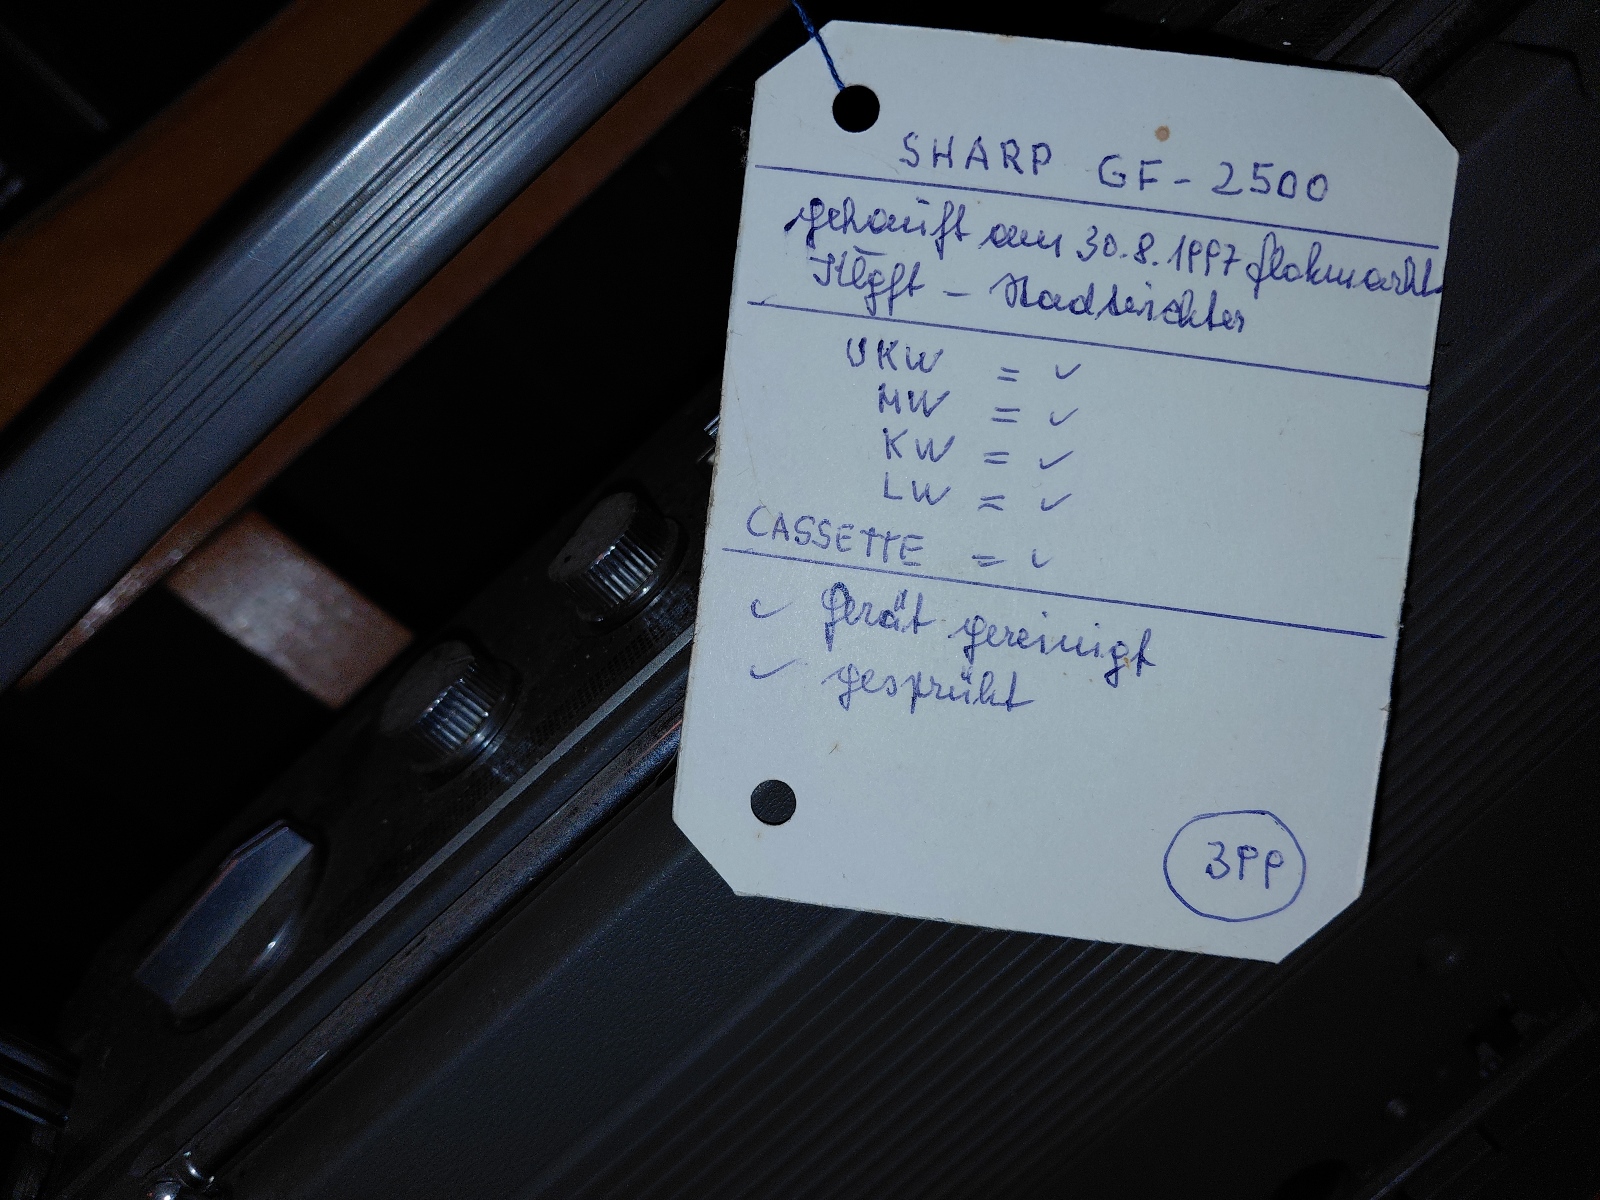 SHARP GF-2500
gekauft am 30.8.1997 Flohmarkt
- Stadtrichter
UKW = ✓
MW = ✓
KW = ✓
LW = ✓
CASSETTE = ✓
✓ Gerät gereinigt
✓ gesprüht